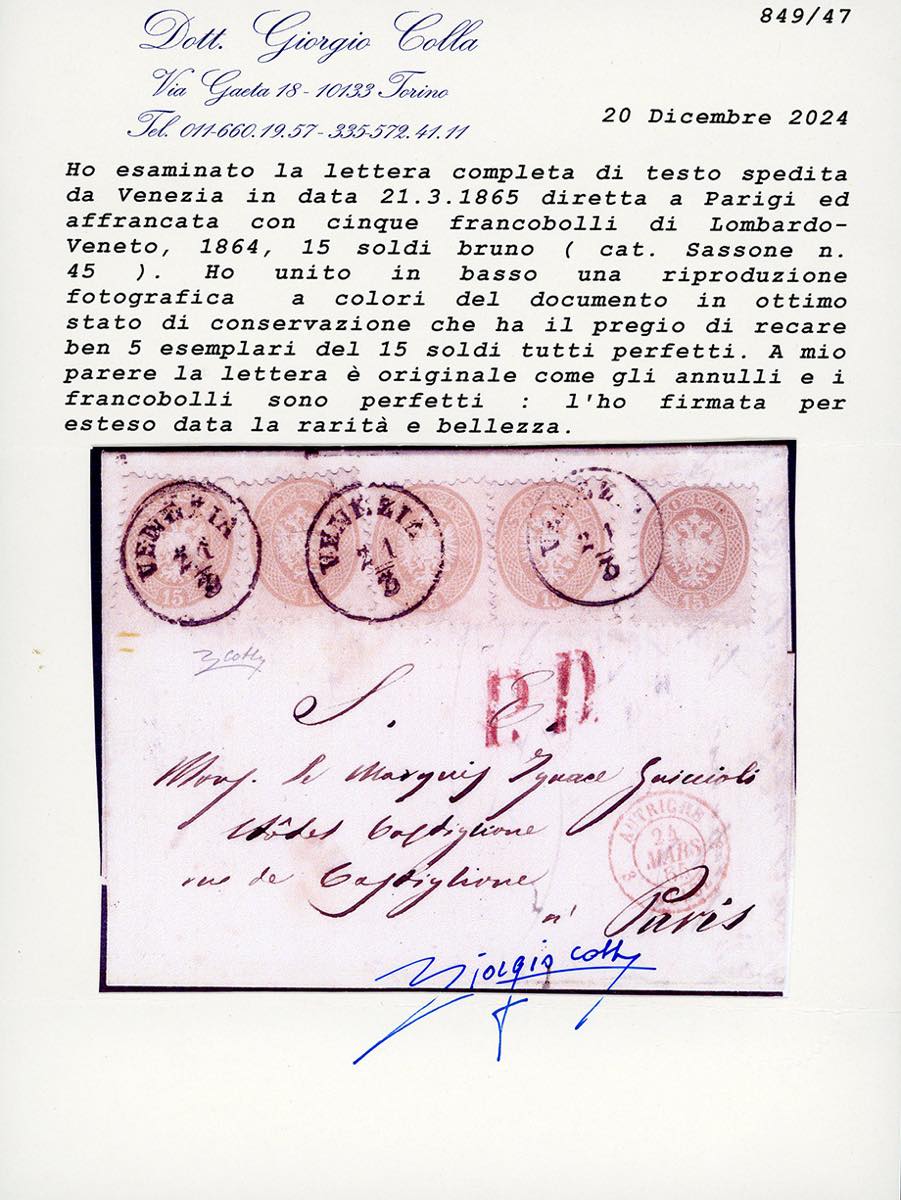 849/47
Dott. Giorgio Colla
Via Gaeta 18 - 10133 Torino
Tel. 011-660.19.57 - 335-572.41.11
20 Dicembre 2024
Ho esaminato la lettera completa di testo spedita
da Venezia in data 21.3.1865 diretta a Parigi ed
affrancata con cinque francobolli di Lombardo-
Veneto, 1864, 15 soldi bruno ( cat. Sassone n.
45 ). Ho unito in basso una riproduzione
fotografica a colori del documento in ottimo
stato di conservazione che ha il pregio di recare
ben 5 esemplari del 15 soldi tutti perfetti. A mio
parere la lettera è originale come gli annulli e i
francobolli sono perfetti : l'ho firmata per
esteso data la rarità e bellezza.
VENEZIA
21/3
VENEZIA
21/3
VENEZIA
21/3
15
15
15
15
15
GColla
P.D.
S. E.
Mons. le Marquis Ignace Guiccioli
Hôtel Castiglione
rue de Castiglione
à Paris
AUTRICHE
24
MARS
65
Giorgio Colla